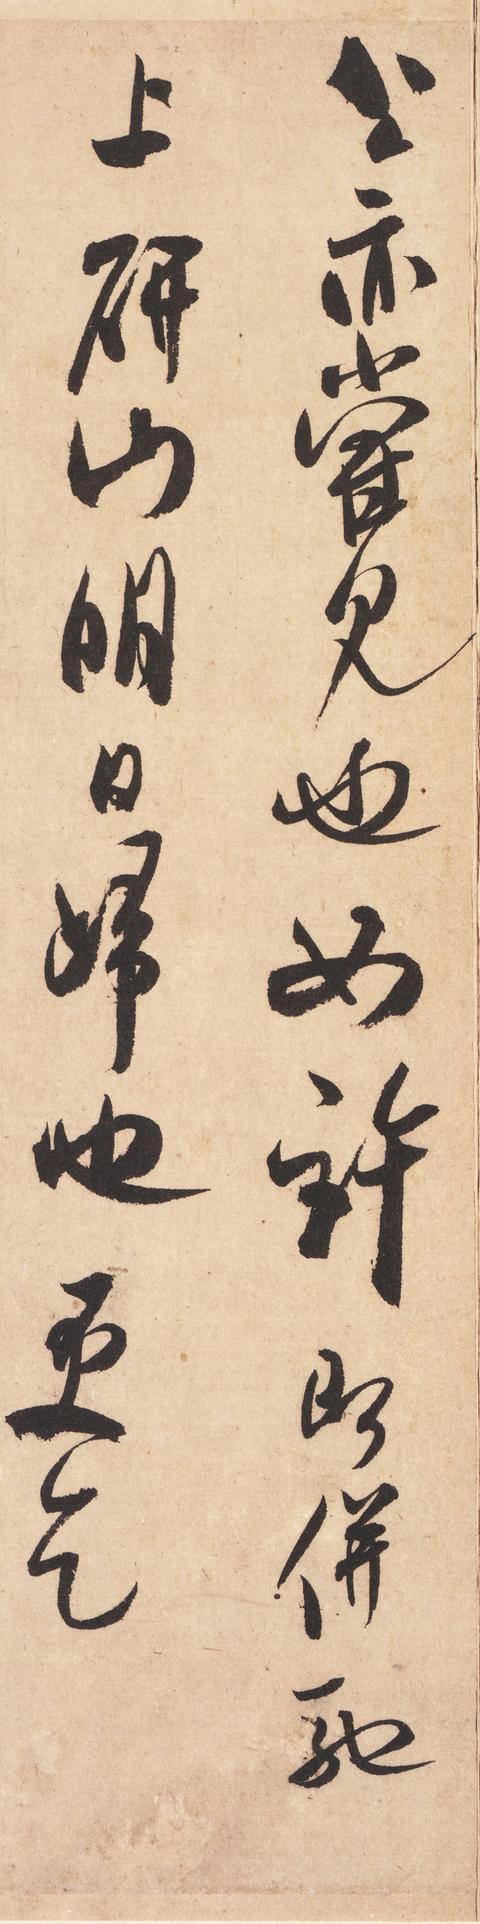 公亦嘗見也如許即併馳
上研山明日歸也更乞